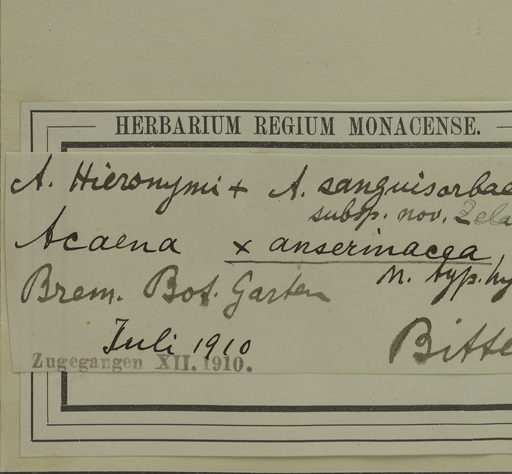 HERBARIUM REGIUM MONACENSE.
A. Hieronymi + A. sanguisorbae
subsp. nov.
Acaena × anserinacea
n. typ. hy
Brem. Bot. Garten
Juli 1910 Bitte
Zugegangen XII. 1910.